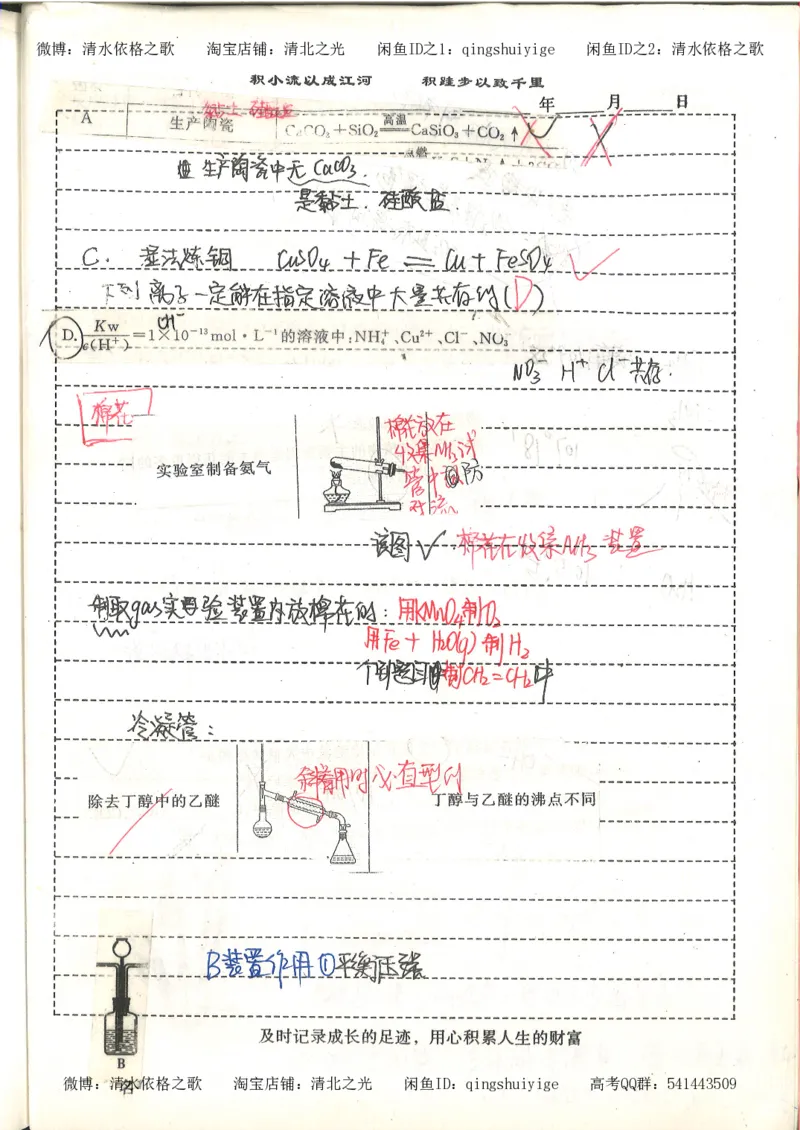 微博：清水依格之歌 淘宝店铺：清北之光 闲鱼ID之1：qingshuiyige 闲鱼ID之2：清水依格之歌
积小流以成江河 积跬步以致千里
年 月 日
黏土 硅酸盐
A 生产陶瓷 CaCO₃+SiO₂ 高温 CaSiO₃+CO₂↑
点燃
生产陶瓷中无 CaCO₃.
是黏土. 硅酸盐.
C. 湿法炼铜 CuSO₄ + Fe = Cu + FeSO₄
下列离子一定能在指定溶液中大量共存的(D)
OH⁻
D. Kw/c(H⁺)=1×10⁻¹³mol·L⁻¹的溶液中:NH₄⁺、Cu²⁺、Cl⁻、NO₃⁻
NO₃⁻ H⁺ Cl⁻ 共存.
棉花
实验室制备氨气
棉花放在
收集NH₃试
管中 防
对流
该图✓ 棉花在收集NH₃ 装置
制取gas实验装置内放棉花的: 用KMnO₄制O₂
用Fe + H₂O(g) 制H₂
个别题 制CH₂=CH₂中
冷凝管:
斜着用时必直型的
除去丁醇中的乙醚 丁醇与乙醚的沸点不同
B装置作用①平衡压强
B
及时记录成长的足迹，用心积累人生的财富
微博：清水依格之歌 淘宝店铺：清北之光 闲鱼ID：qingshuiyige 高考QQ群：541443509